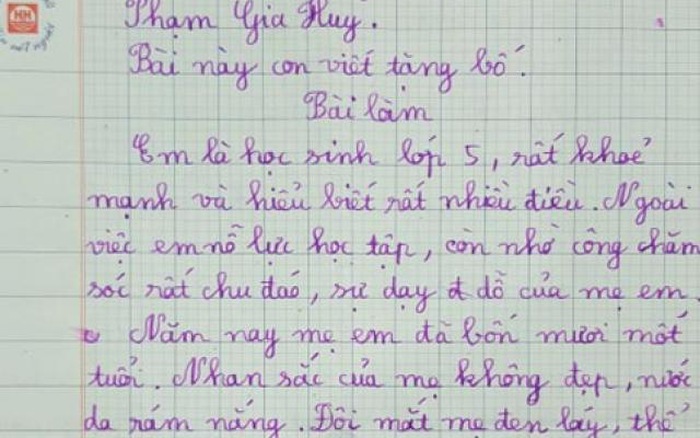 Phạm Gia Huy.
Bài này con viết tặng bố.
Bài làm
Em là học sinh lớp 5, rất khoẻ
mạnh và hiểu biết rất nhiều điều. Ngoài
việc em nỗ lực học tập, còn nhờ công chăm
sóc rất chu đáo, sự dạy dỗ của mẹ em
Năm nay mẹ em đã bốn mươi một
tuổi. Nhan sắc của mẹ không đẹp, nước
da rám nắng. Đôi mắt mẹ đen láy, thể